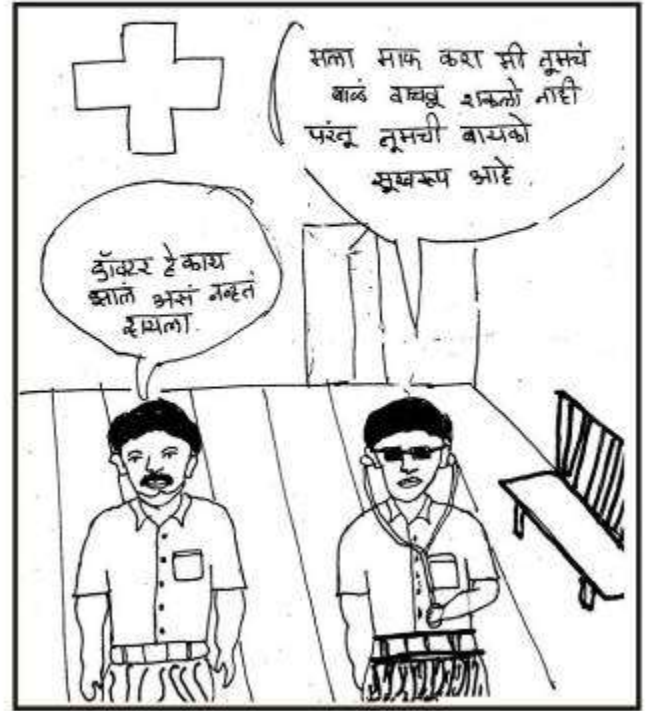 मला माफ करा मी तूमचं
बाळं वाचवू शकलो नाही
परंतू तूमची बायको
सूखरूप आहे.
डॉक्टर हे काय
झालं असं नव्हतं
व्हायला.